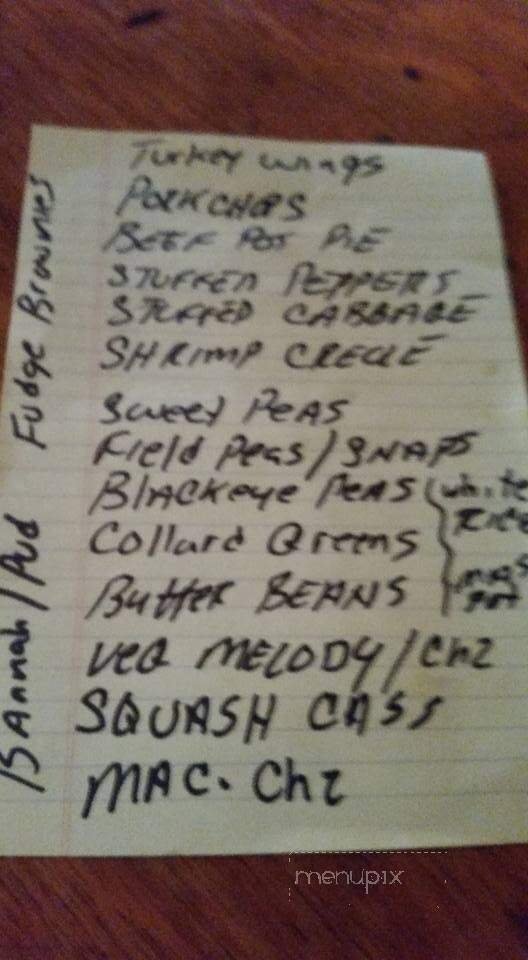 Turkey wings
PORKCHOPS
BEEF POT PIE
STUFFED PEPPERS
STUFFED CABBAGE
SHRIMP CREOLE
Sweet PEAS
Field Peas/SNAPS
Blackeye PEAS
Collard Greens
Butter BEANS
white
RICE
Veg MELODY/Chz
SQUASH CASS
MAC. Chz
Fudge Brownies
BANNAh/Pud
menupix